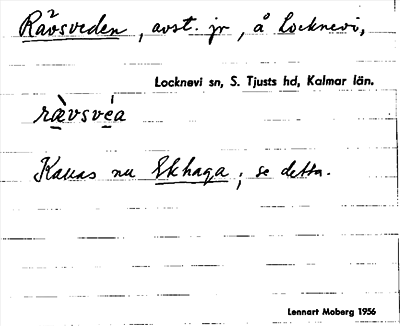 Rävsveden, avst. jr, å Locknevi,
Locknevi sn, S. Tjusts hd, Kalmar län.
rävsvéa
Kallas nu Ekhaga; se detta.
Lennart Moberg 1956